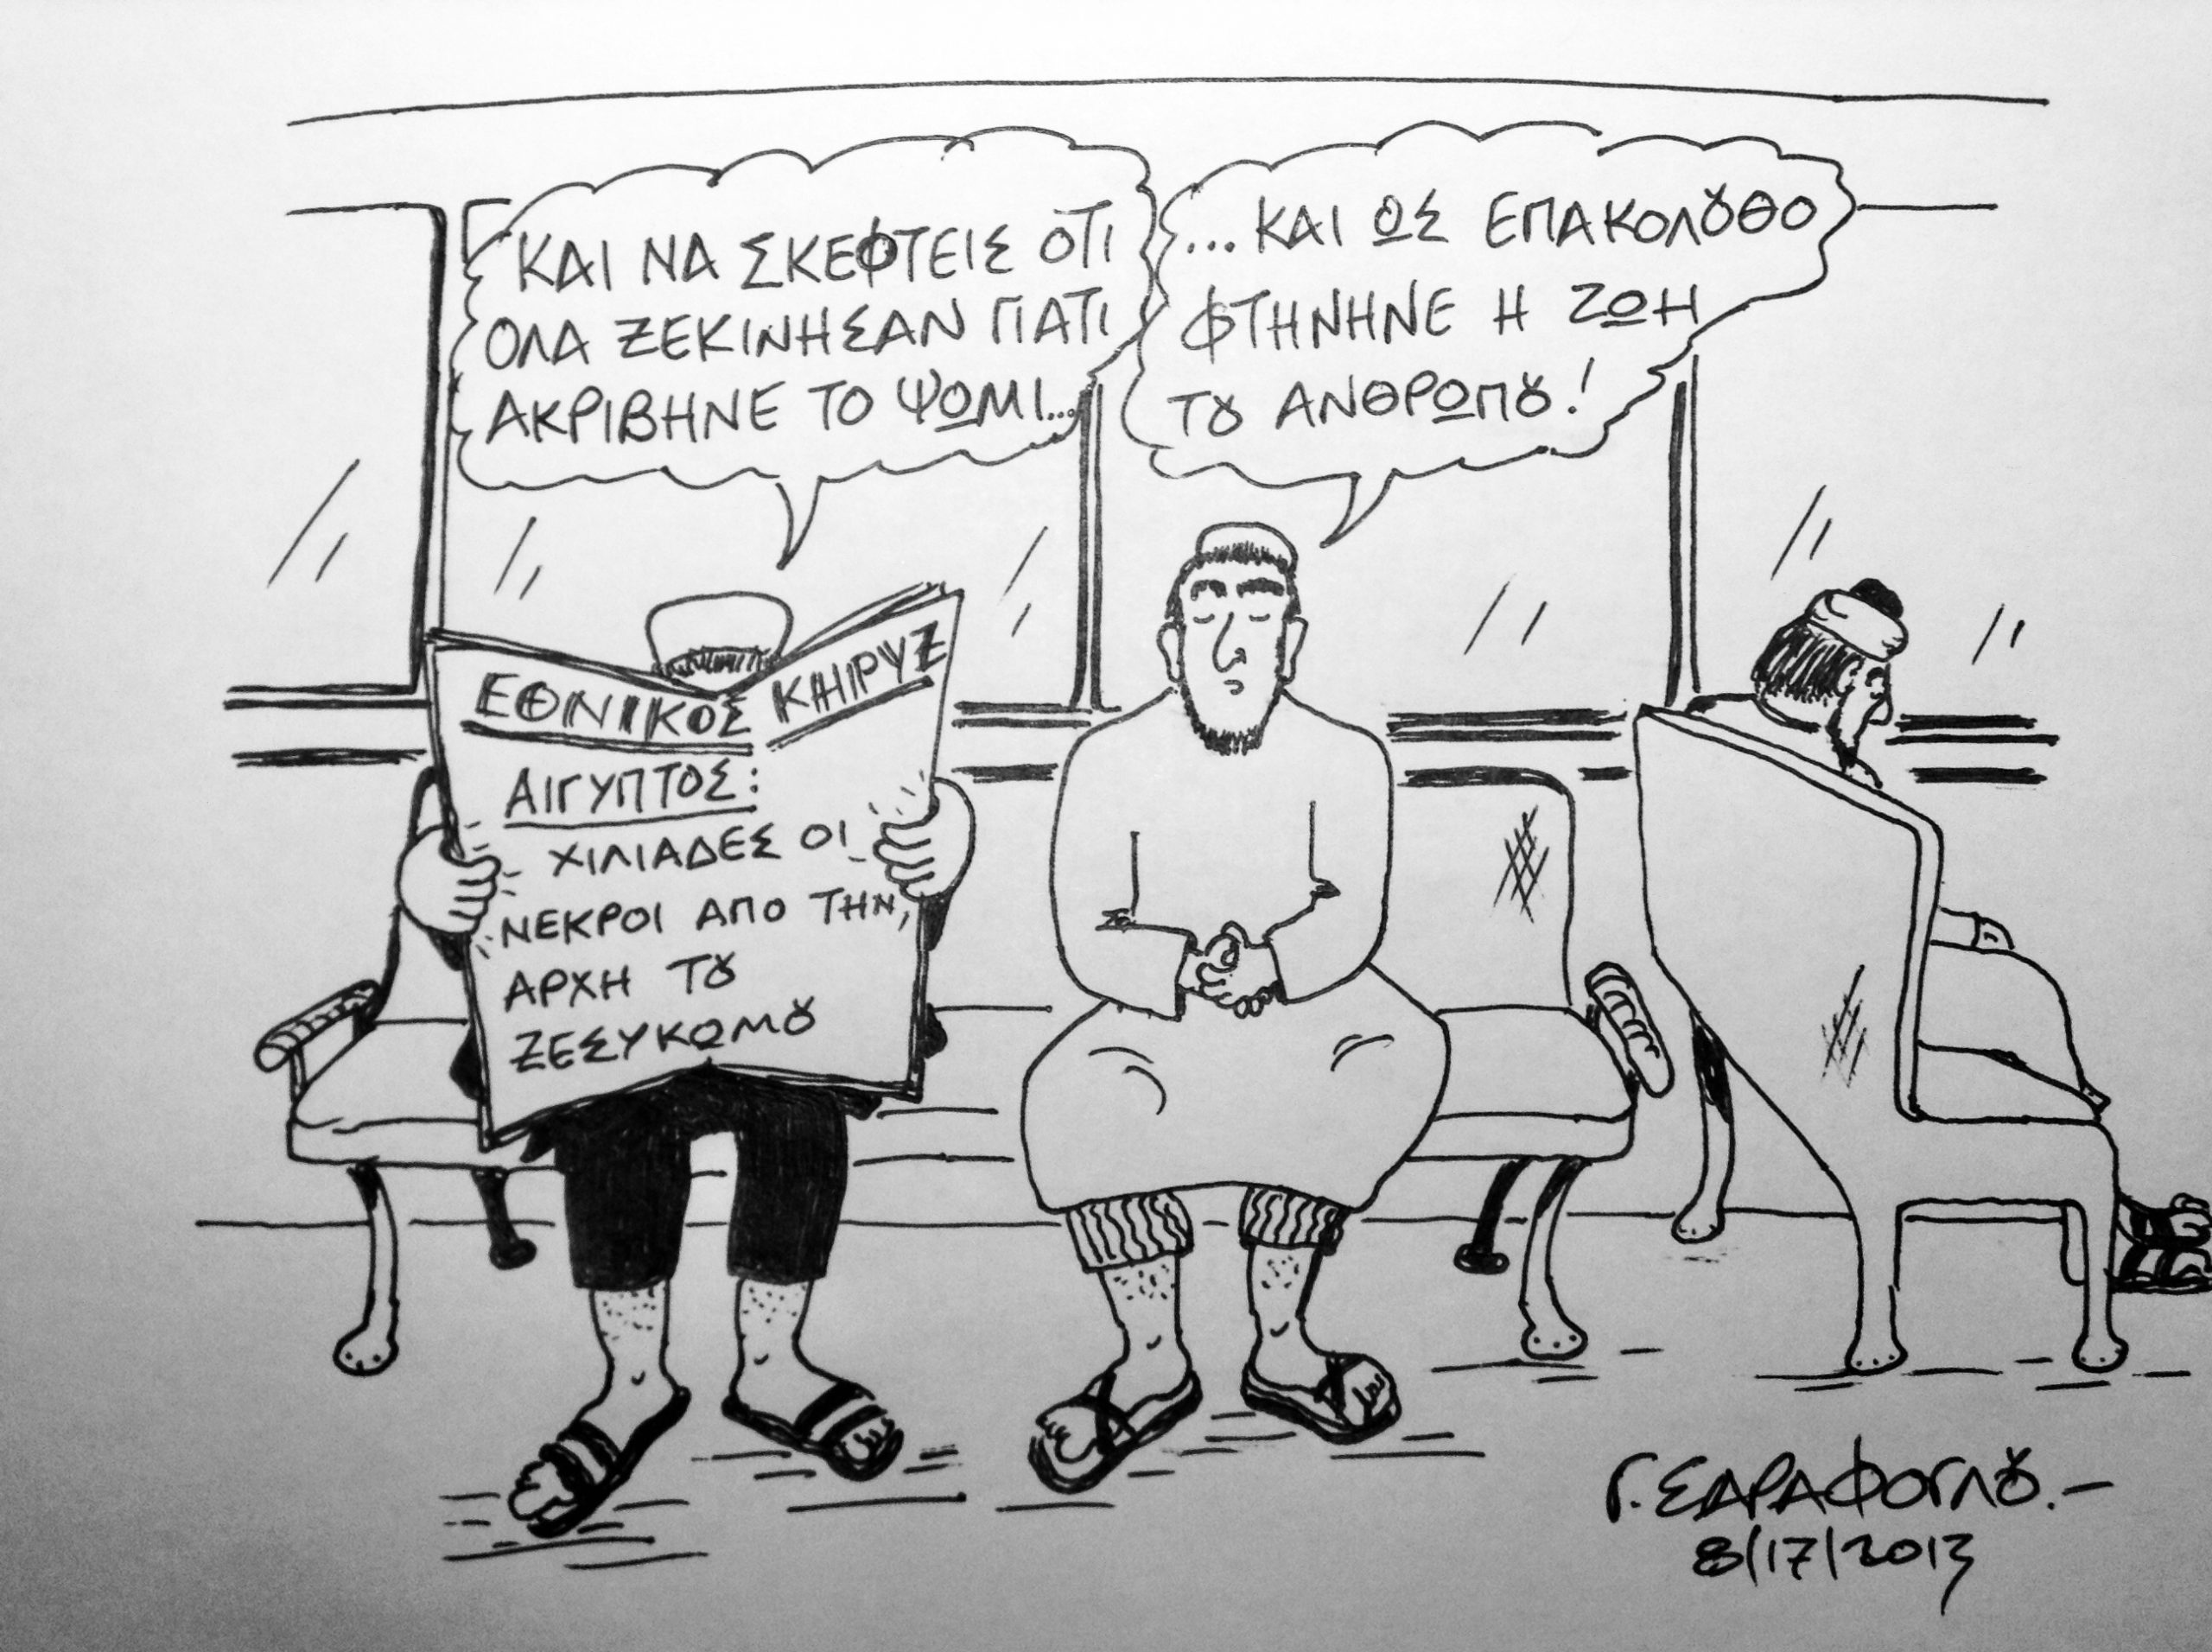 ΚΑΙ ΝΑ ΣΚΕΦΤΕΙΣ ΟΤΙ
ΟΛΑ ΞΕΚΙΝΗΣΑΝ ΓΙΑΤΙ
ΑΚΡΙΒΗΝΕ ΤΟ ΨΩΜΙ...
...ΚΑΙ ΩΣ ΕΠΑΚΟΛȢΘΟ
ΦΤΗΝΗΝΕ Η ΖΩΗ
ΤȢ ΑΝΘΡΩΠȢ!
ΕΘΝΙΚΟΣ ΚΗΡΥΞ
ΑΙΓΥΠΤΟΣ:
ΧΙΛΙΑΔΕΣ ΟΙ
ΝΕΚΡΟΙ ΑΠΟ ΤΗΝ
ΑΡΧΗ ΤȢ
ΞΕΣΥΚΩΜȢ
Γ. ΣΑΡΑΦΟΓΛȢ.-
8/17/2013